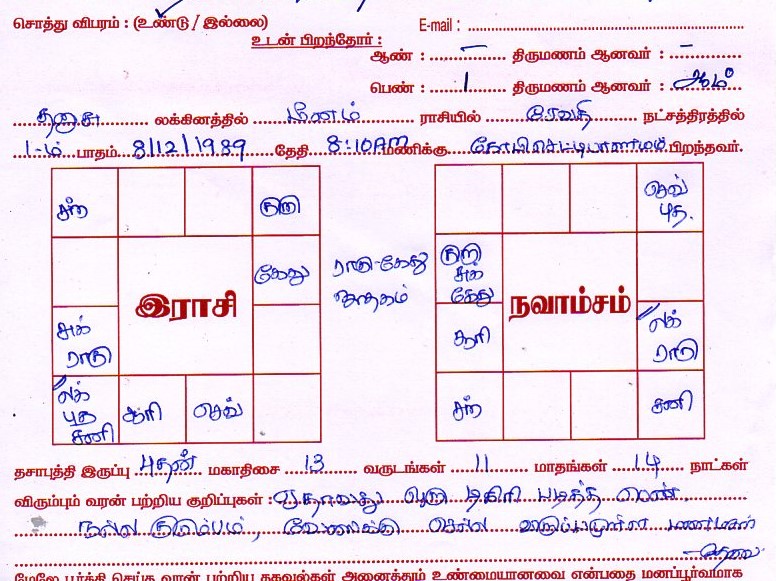 சொத்து விபரம் : (உண்டு / இல்லை) E-mail :
உடன் பிறந்தோர் :
ஆண் : – திருமணம் ஆனவர் : –
பெண் : 1 திருமணம் ஆனவர் : ஆம்
தனுசு லக்கினத்தில் மீனம் ராசியில் ரேவதி நட்சத்திரத்தில்
1-ம் பாதம் 8/12/1989 தேதி 8:10AM மணிக்கு கோபிசெட்டிபாளையம் பிறந்தவர்.
சந் குரு
கேது
இராசி
சுக் ராகு
லக் புத சனி சூரி செவ்
ராகு-கேது ஜாதகம்
செவ் புத.
குரு சுக் கேது
நவாம்சம்
சூரி லக் ராகு
சந் சனி
தசாபுத்தி இருப்பு புதன் மகாதிசை 13 வருடங்கள் 11 மாதங்கள் 14 நாட்கள்
விரும்பும் வரன் பற்றிய குறிப்புகள் : ஏதாவது ஒரு டிகிரி படித்த பெண்,
நல்ல குடும்பம், வேலைக்கு செல்ல விருப்பமுள்ள மணமகள்
தேவை
மேலே பூர்த்தி செய்த வரன் பற்றிய தகவல்கள் அனைத்தும் உண்மையானவை என்பதை மனப்பூர்வமாக